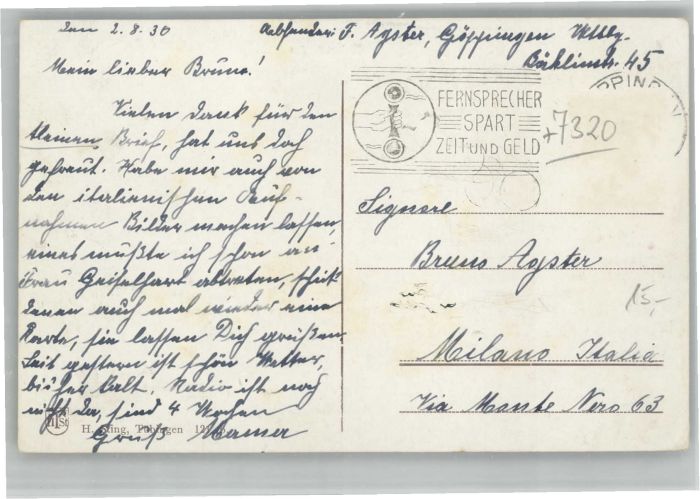 den 2.8.30
Absender: F. Ayster, Göppingen Wttbg.
Böhlinstr. 45
Mein lieber Bruno!
Vielen Dank für den
kleinen Brief, hat uns doch
gefreut. Habe mir auch von
den italienischen Auf-
nahmen Bilder machen lassen,
eines mußte ich schon an
Frau Geiselhart abtreten, schick
denen auch mal wieder eine
Karte, sie lassen Dich grüßen.
Seit gestern ist schön Wetter,
bisher kalt. Radio ist noch
nicht da, sind 4 Wochen
Gruß Mama
H. Sting, Tübingen
FERNSPRECHER
SPART
ZEIT UND GELD
+7320
Signore
Bruno Ayster
15,-
Milano Italia
Via Monte Nero 63